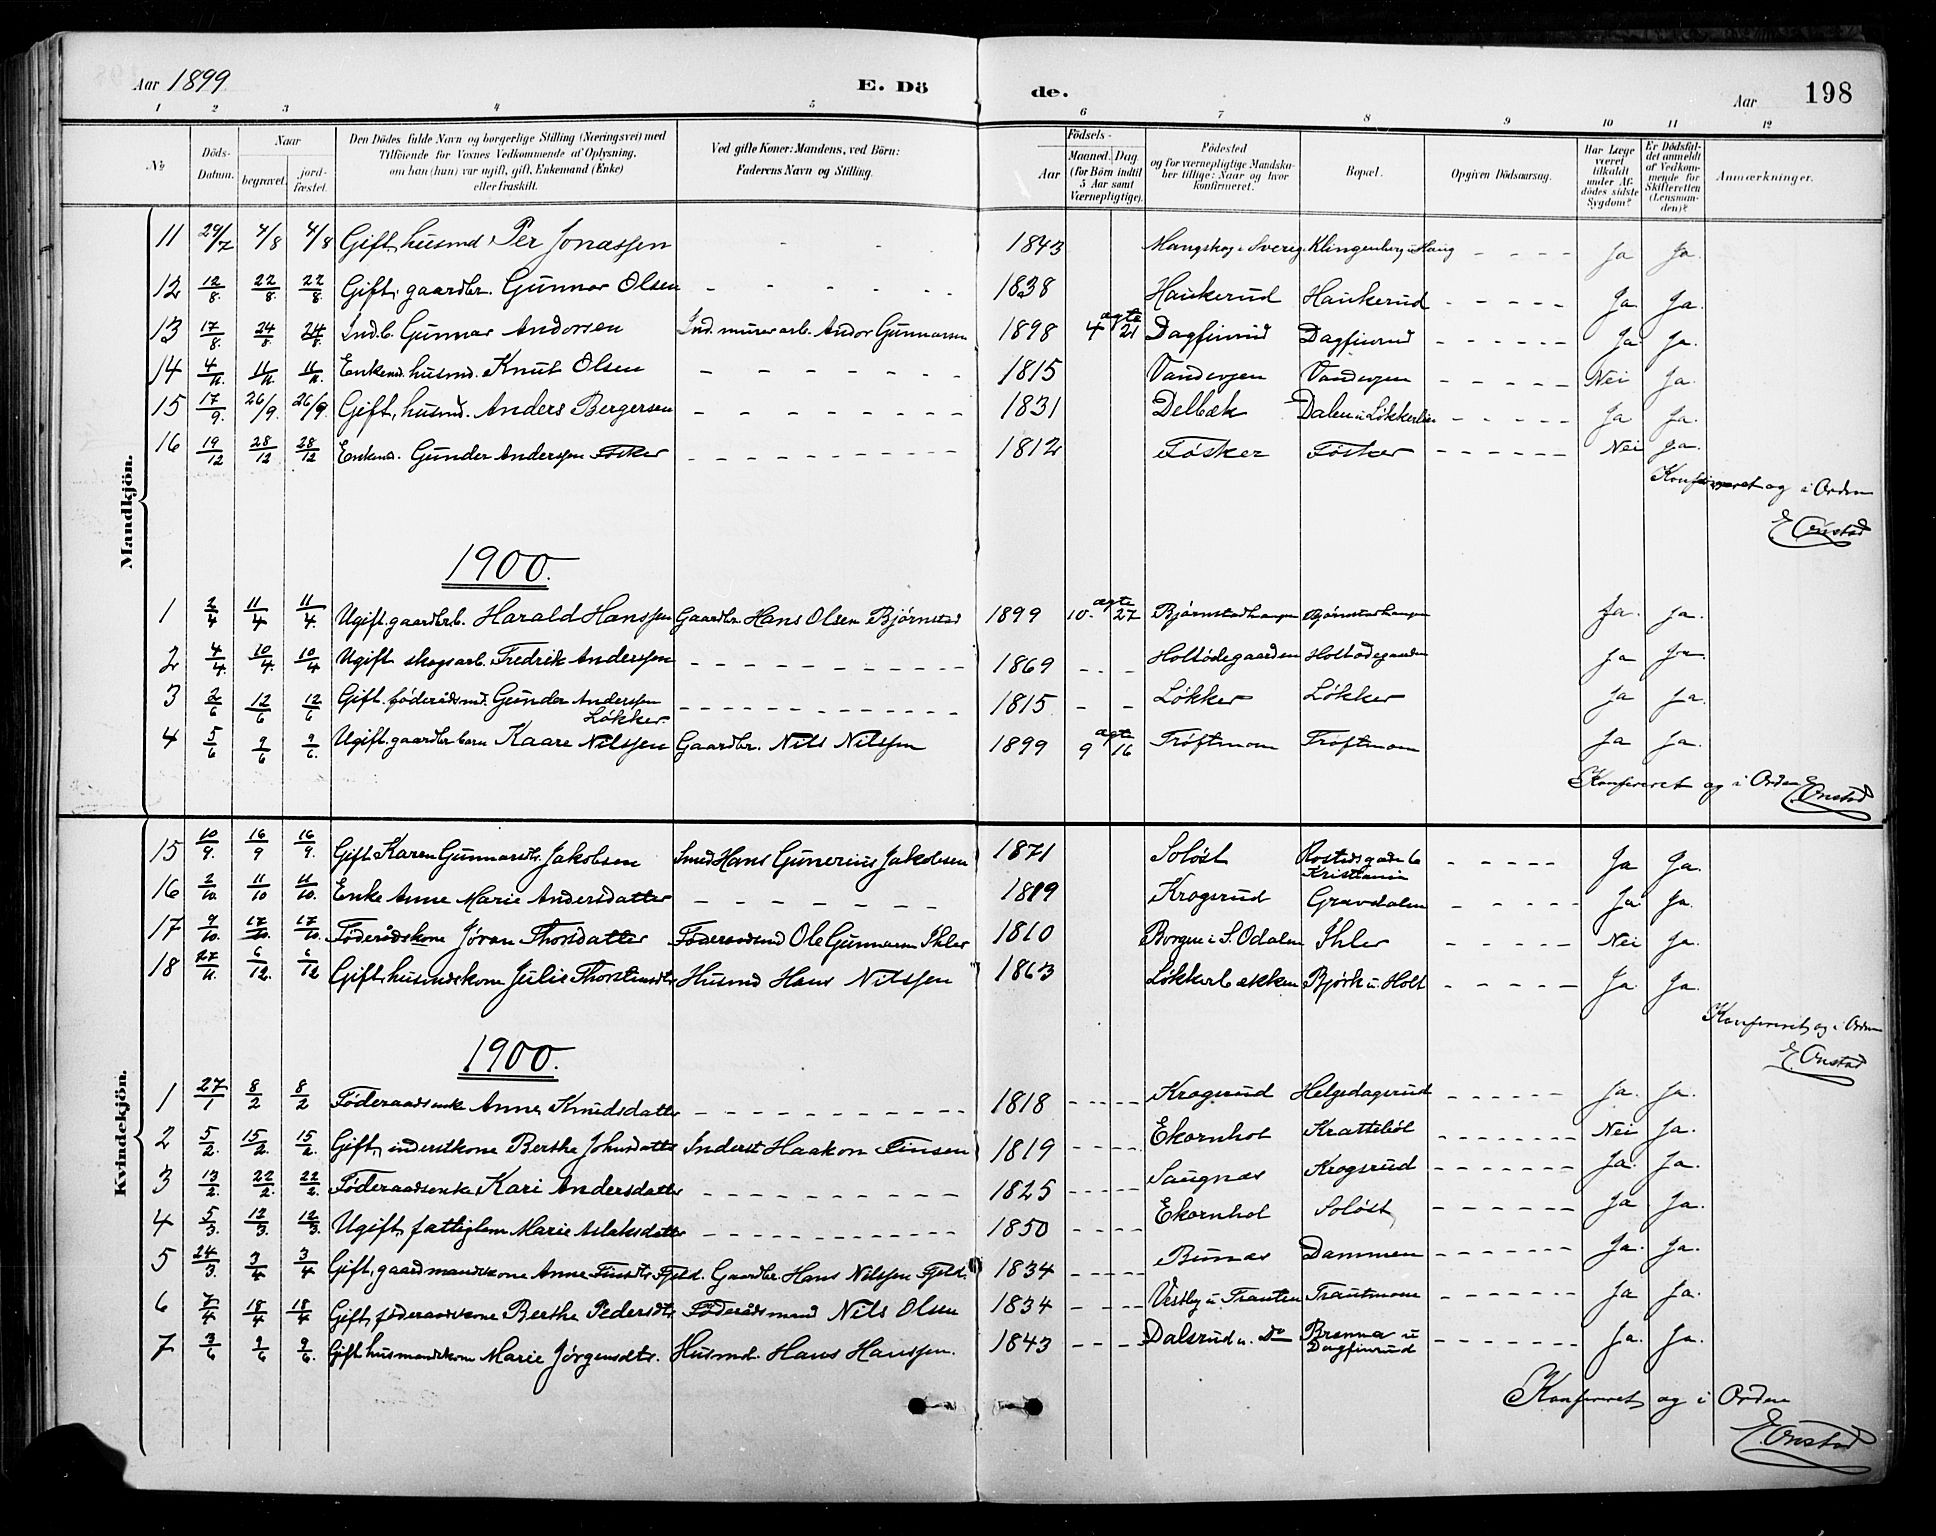 Aar 1899 E. Dö de. Aar 198
1 2 3 4 5 6 7 8 9 10 11 12
No. Döds-Datum. Naar begravet. jord-fæstet. Den Dödes fulde Navn og borgerlige Stilling (Næringsvei) med Tilföiende for Voxnes Vedkommende af Oplysning, om han (hun) var ugift, gift, Enkemand (Enke) eller fraskilt. Ved gifte Koner: Mandens, ved Börn: Faderens Navn og Stilling. Födsels- Aar Maaned. Dag. (for Börn indtil 5 Aar samt Værnepligtige). Födested og for værnepligtige Mandskaber tillige: Naar og hvor konfirmeret. Bopæl. Opgiven Dödsaarsag. Har Læge været tilkaldt under Afdödes sidste Sygdom? Er Dödsfaldet anmeldt af Vedkommende for Skifteretten (Lensmanden)? Anmærkninger.
Mandkjön.
11 29/7 4/8 4/8 Gift, husmd. Per Jonassen - - 1843 Mangskog i Sverig Klingenberg u. Haug - - - - Ja Ja.
12 12/8. 22/8. 22/8. Gift. gaardbr. Gunnar Olsen - - - - - 1838 Haukerud Haukerud - - - - - Ja Ja.
13 17/8. 24/8. 24/8. Indb. Gunnar Andorsen Ind. murerarb. Andor Gunnarsen 1898 4 ægte 21 Dagfinrud Dagfinrud - - - - - Ja Ja.
14 4/11. 11/11. 11/11. Enkemd. husmd. Knut Olsen - - - - - - - 1815 Vandergen Vandergen - - - - - Nei Ja.
15 17/9. 26/9. 26/9. Gift, husmd. Anders Bergersen - - - - - - - 1831 Delbæk Dalen u. Løkkerlien - - - - - - Ja Ja.
16 19/12 28/12 28/12 Enkemd. Gunder Anderssen Føsker - - - - - - - - 1812 Føsker Føsker - - - - - - Nei Ja.
Konfereret og i Orden
E Onstad
1900.
1 2/4 11/4 11/4. Ugift. gaardbrb. Harald Hanssen Gaardbr. Hans Olsen Bjørnstad 1899 10. ægte 27 Bjørnstadhaugen Bjørnstadhaugen Ja. Ja.
2 4/4. 10/4. 10/4 Ugift skogsarb. Fredrik Anderssen - - - - - - - - - 1869 - - - Holtødegaarden Holtødegaarden Ja Ja.
3 2/6 12/6 12/6 Gift. føderådsmd. Gunder Anderssen Løkker. - - - - - - - - - - - 1815 - - Løkker Løkker Ja Ja.
4 5/6 9/6 9/6. Ugift. gaardbr. barn Kaare Nilssen Gaardbr. Nils Nilssen 1899 9 ægte 16 Trøftmom Trøftmom Ja Ja.
Konfereret og i Orden E. Onstad
Kvindekjön.
15 10/9. 16/9 16/9. Gift Karen Gunnarsdtr. Jakobsen Smed Hans Gunerius Jakobsen 1871 Soløst Rostedsgade 6 Kristiania - - - - - Ja Ja.
16 2/10. 11/10 11/10. Enke Anne Marie Andersdatter - - - - - - - 1819 Krogsrud Gravdalen - - - - - Ja Ja.
17 9/10. 17/10. 17/10. Føderådskone Jøran Thorsdatter Føderaadsmd Ole Gunnarsen Ihler 1810 Borgen i S. Odalen Ihler - - - - - Nei Ja.
18 27/11. 6/12. 6/12 Gift, husmdskone Julie Thorstensdtr Husmd Hans Nilssen 1863 Løkkerbækken Bjørk u. Holt - - - - - Ja Ja.
Konfereret og i Orden
E. Onstad
1900.
1 27/1 8/2 8/2 Føderaadsenke Anne Knudsdatter - - - - - - - - - - 1818 - - - - Krogsrud Helgedagsrud - - - - - - Ja. Ja.
2 5/2. 15/2. 15/2. Gift, inderstkone Berthe Johnsdatter Inderst Haakon Finsen 1819 - - - - - Ekornhol Krattebøl - - - - - - - Nei Ja.
3 13/2. 22/2. 22/2. Føderaadsenke Kari Andersdatter - - - - - - - - - - 1825 - - - - - Saugnæs Krogsrud - - - - - - - Ja. Ja.
4 5/3. 12/3 12/3. Ugift, fattiglem Marie Aslaksdatter - - - - - - - - - - 1850 - - - - - Ekornhol Soløst - - - - - - - Ja Ja.
5 24/3. 3/4 3/4 Gift, gaardmandskone Anne Finsdtr Fjeld. Gaardbr. Hans Nilssen Fjeld. 1834 - - - - - Bunæs Dammen - - - - - - - Ja. Ja.
6 7/4 18/4 18/4 Gift, føderaadskone Berthe Pedersdtr Føderådsmand Nils Olsen 1834 - - - - Vestby u. Trauten Trautmom - - - - - - Ja Ja.
7 3/6 9/6 9/6. Gift husmandskone Marie Jørgensdtr. Husmd. Hans Hanssen. 1843 - - - - Dalsrud u. Do Brenna u Dagfinrud - - - - - - Ja. Ja.
Konfereret og i Orden
E. Onstad